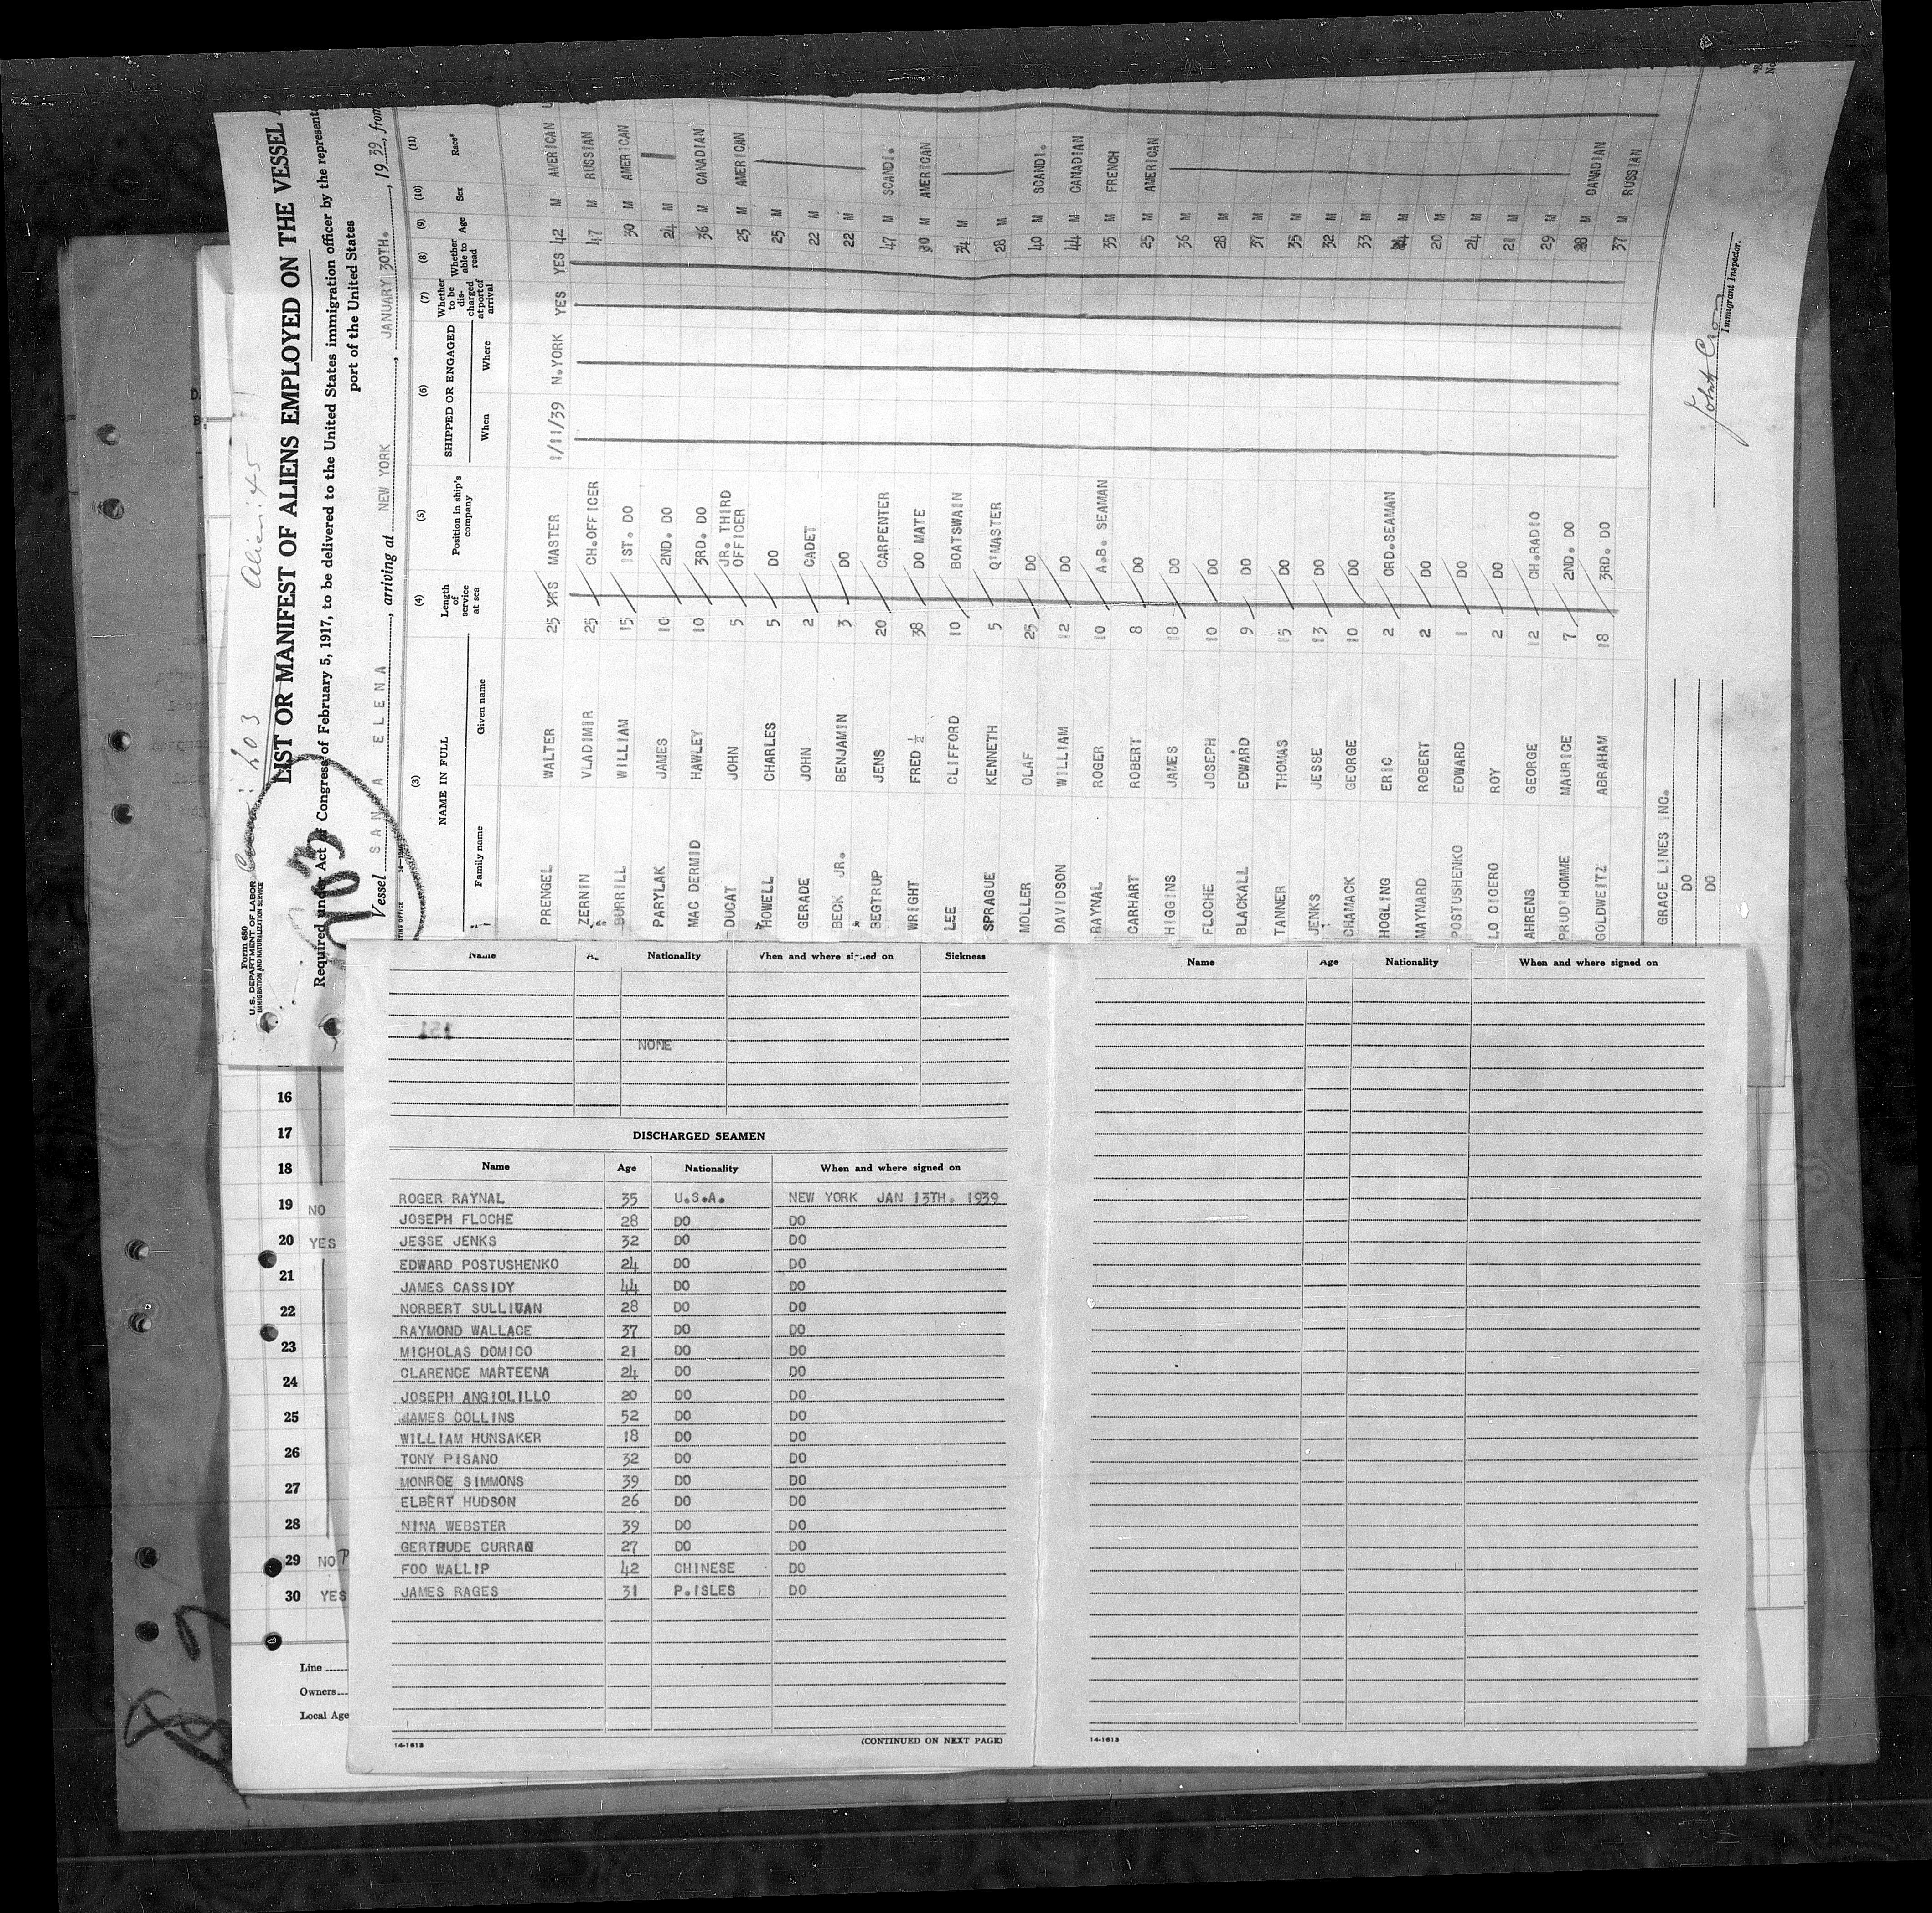 Form 680
U.S. DEPARTMENT OF LABOR
IMMIGRATION AND NATURALIZATION SERVICE
203
Aliens: 45
LIST OR MANIFEST OF ALIENS EMPLOYED ON THE VESSEL
Required under Act of Congress of February 5, 1917, to be delivered to the United States immigration officer by the represent
port of the United States
Vessel SANTA ELENA, arriving at NEW YORK, JANUARY 30TH., 1939, from
(3) (4) (5) (6) (7) (8) (9) (10) (11)
NAME IN FULL Length of service at sea Position in ship's company SHIPPED OR ENGAGED Whether to be discharged at port of arrival Whether able to read Age Sex Race*
Family name Given name When Where
PRENGEL WALTER 25 YRS MASTER 1/11/39 N.YORK YES YES 42 M AMERICAN
ZERNIN VLADIMIR 25 CH.OFFICER 47 M RUSSIAN
BURRILL WILLIAM 15 1ST. DO 30 M AMERICAN
PARYLAK JAMES 10 2ND. DO 24 M
MAC DERMID HAWLEY 10 3RD. DO 36 M CANADIAN
DUCAT JOHN 5 JR. THIRD OFFICER 25 M AMERICAN
HOWELL CHARLES 5 DO 25 M
GERADE JOHN 2 CADET 22 M
BECK JR. BENJAMIN 3 DO 22 M
BEGTRUP JENS 20 CARPENTER 47 M SCANDI.
WRIGHT FRED ½ 38 DO MATE 30 M AMERICAN
LEE CLIFFORD 10 BOATSWAIN 34 M
SPRAGUE KENNETH 5 Q'MASTER 28 M
MOLLER OLAF 25 DO 40 M SCANDI.
DAVIDSON WILLIAM 12 DO 44 M CANADIAN
RAYNAL ROGER 10 A.B. SEAMAN 35 M FRENCH
CARHART ROBERT 8 DO 25 M AMERICAN
HIGGINS JAMES 18 DO 36 M
FLOCHE JOSEPH 10 DO 28 M
BLACKALL EDWARD 9 DO 37 M
TANNER THOMAS 15 DO 35 M
JENKS JESSE 13 DO 32 M
CHAMACK GEORGE 10 DO 33 M
HOGLING ERIC 2 ORD.SEAMAN 24 M
MAYNARD ROBERT 2 DO 20 M
POSTUSHENKO EDWARD 1 DO 24 M
LO CICERO ROY 2 DO 21 M
AHRENS GEORGE 12 CH.RADIO 29 M
PRUD'HOMME MAURICE 7 2ND. DO 28 M CANADIAN
GOLDWEITZ ABRAHAM 18 3RD. DO 37 M RUSSIAN
GRACE LINES INC.
DO
DO
Immigrant Inspector.
Name Nationality When and where signed on Sickness
NONE
DISCHARGED SEAMEN
Name Age Nationality When and where signed on
ROGER RAYNAL 35 U.S.A. NEW YORK JAN 13TH. 1939
JOSEPH FLOCHE 28 DO DO
JESSE JENKS 32 DO DO
EDWARD POSTUSHENKO 24 DO DO
JAMES CASSIDY 44 DO DO
NORBERT SULLIVAN 28 DO DO
RAYMOND WALLACE 37 DO DO
MICHOLAS DOMICO 21 DO DO
CLARENCE MARTEENA 24 DO DO
JOSEPH ANGIOLILLO 20 DO DO
JAMES COLLINS 52 DO DO
WILLIAM HUNSAKER 18 DO DO
TONY PISANO 32 DO DO
MONROE SIMMONS 39 DO DO
ELBERT HUDSON 26 DO DO
NINA WEBSTER 39 DO DO
GERTRUDE CURRAN 27 DO DO
FOO WALLIP 42 CHINESE DO
JAMES RAGES 31 P.ISLES DO
14-1613
(CONTINUED ON NEXT PAGE)
Name Age Nationality When and where signed on
14-1613
16
17
18
19 NO
20 YES
21
22
23
24
25
26
27
28
29 NO
30 YES
Line
Owners
Local Age